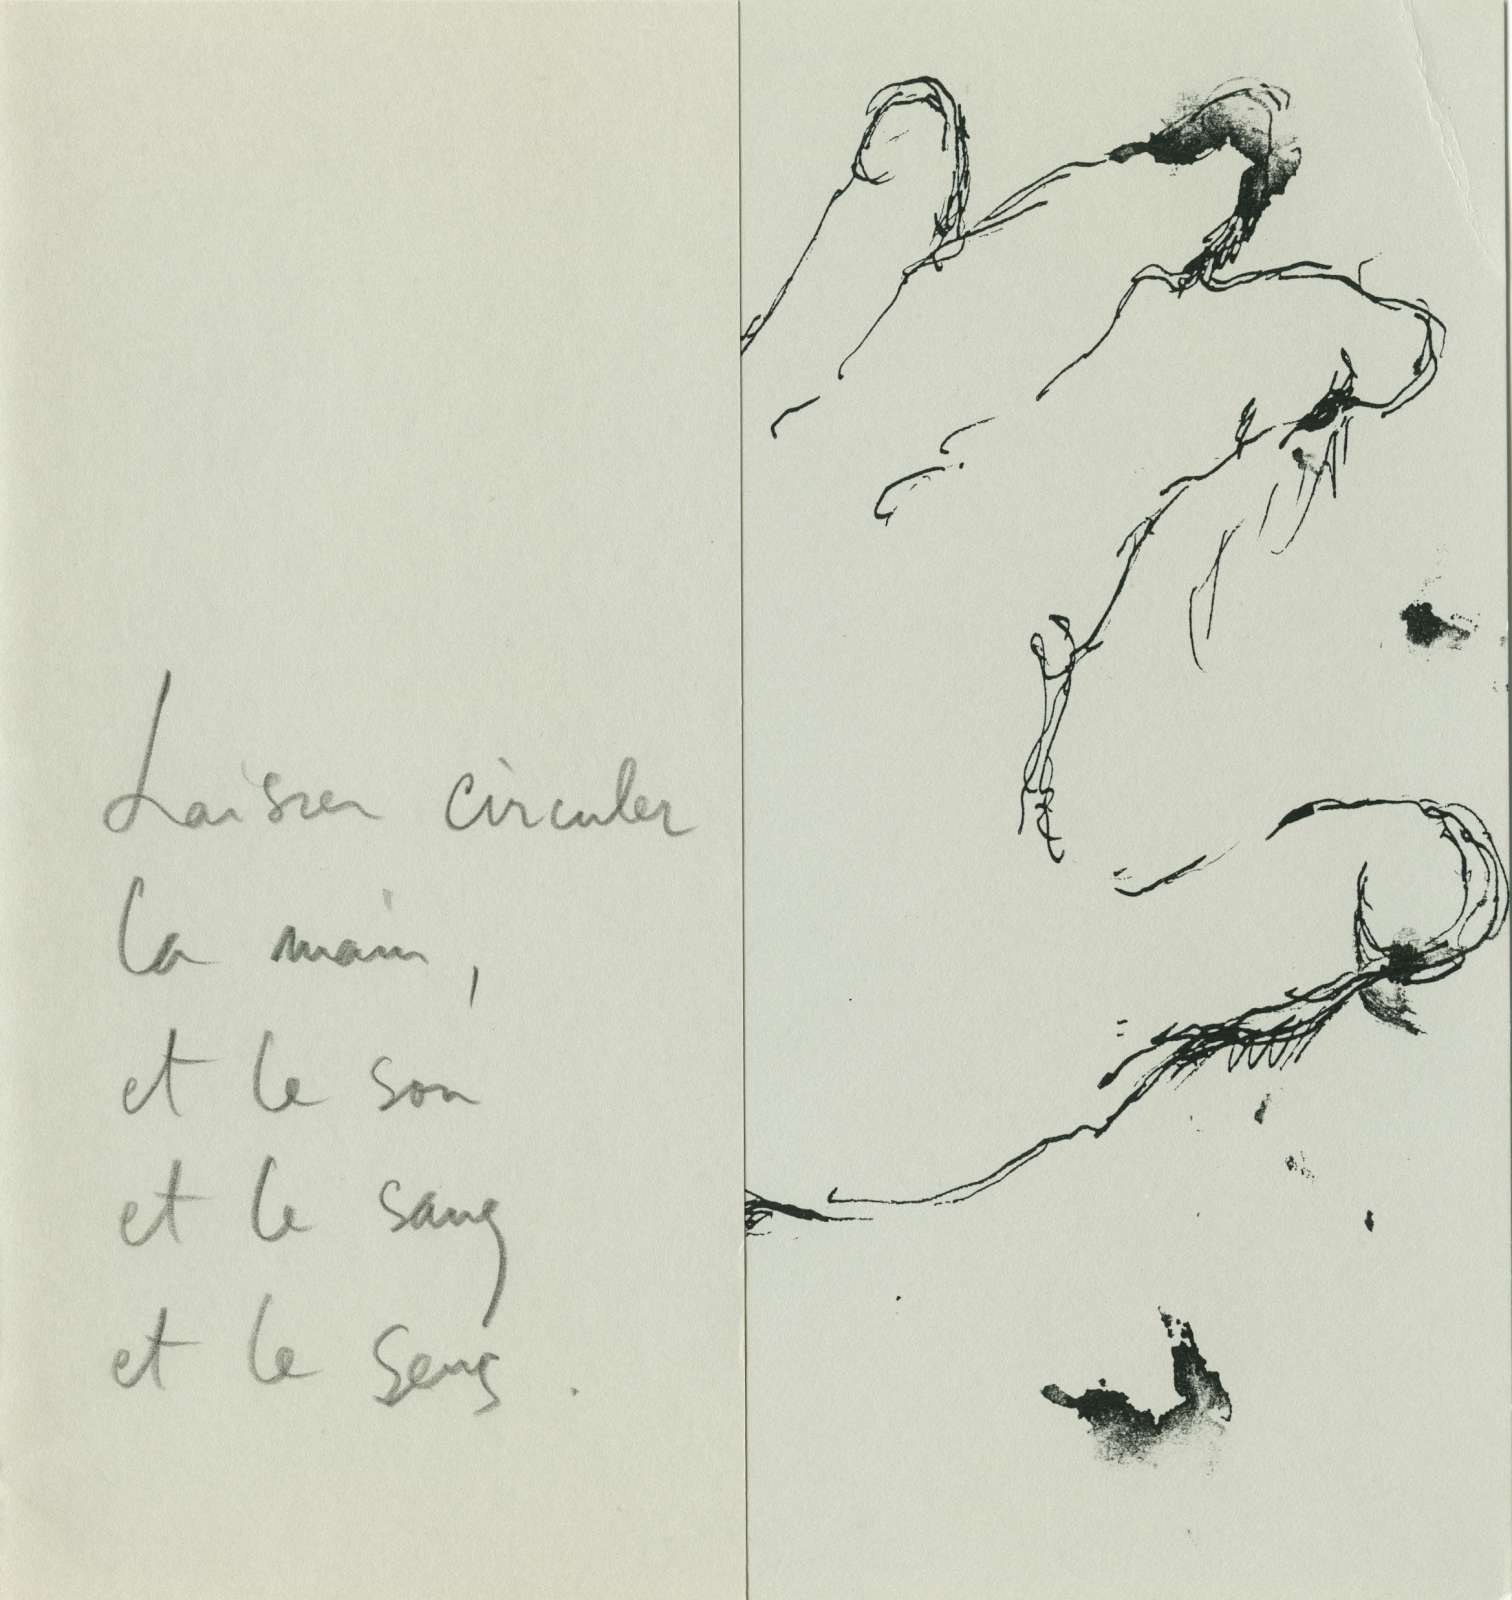 Laisser circuler
la main,
et le son
et le sang
et le sens.